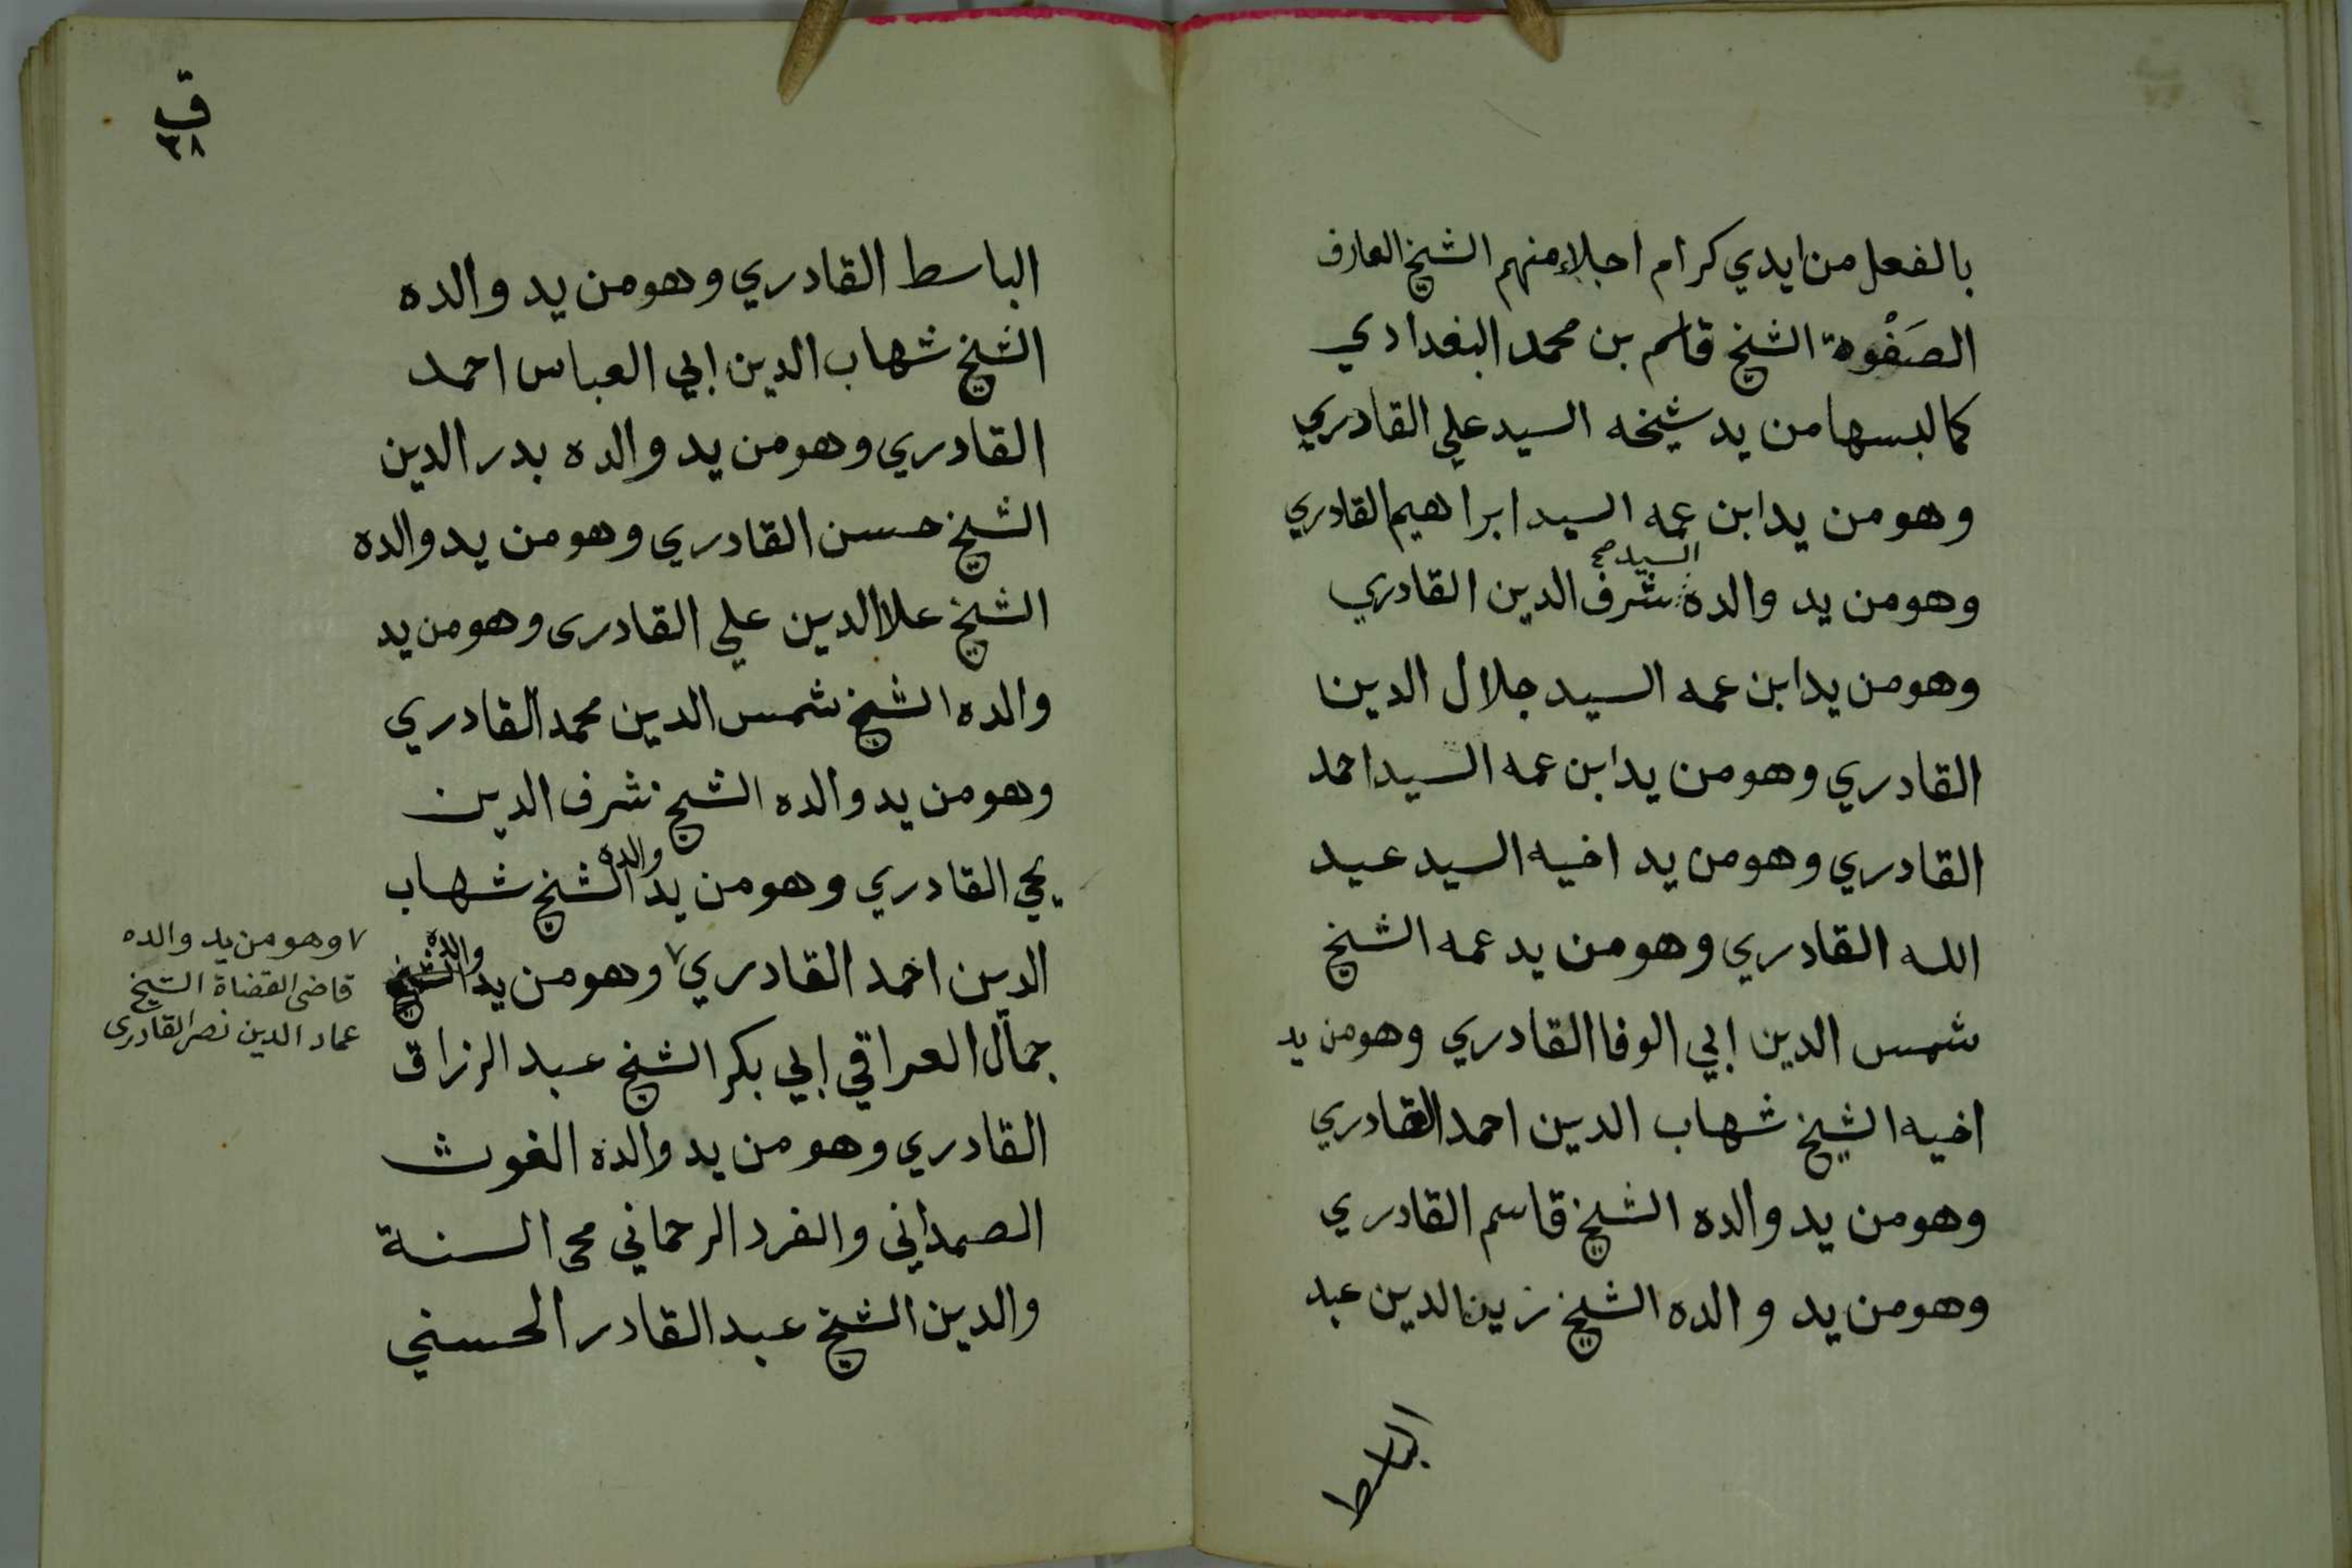 بالفعل من ايدي كرام اجلاء منهم الشيخ العارف
الصَفْوة الشيخ قاسم بن محمد البغدادي
كما لبسها من يد شيخه السيد علي القادري
وهو من يد ابن عمه السيد ابراهيم القادري
السيد صح
وهو من يد والده شرف الدين القادري
وهو من يد ابن عمه السيد جلال الدين
القادري وهو من يد ابن عمه السيد احمد
القادري وهو من يد اخيه السيد عبد
الله القادري وهو من يد عمه الشيخ
شمس الدين ابي الوفا القادري وهو من يد
اخيه الشيخ شهاب الدين احمد القادري
وهو من يد والده الشيخ قاسم القادري
وهو من يد والده الشيخ زين الدين عبد
الباسط
ق
٣٨
الباسط القادري وهو من يد والده
الشيخ شهاب الدين ابي العباس احمد
القادري وهو من يد والده بدر الدين
الشيخ حسن القادري وهو من يد والده
الشيخ علا الدين علي القادرى وهو من يد
والده الشيخ شمس الدين محمد القادري
وهو من يد والده الشيخ شرف الدين
والده
يحي القادري وهو من يد الشيخ شهاب
والده
الدين احمد القادري ٧ وهو من يد الشيخ
جمال العراقي ابي بكر الشيخ عبد الرزاق
القادري وهو من يد والده الغوث
الصمداني والفرد الرحماني محى السنة
والدين الشيخ عبد القادر الحسني
٧ وهو من يد والده
قاضى القضاة الشيخ
عماد الدين نصر القادرى